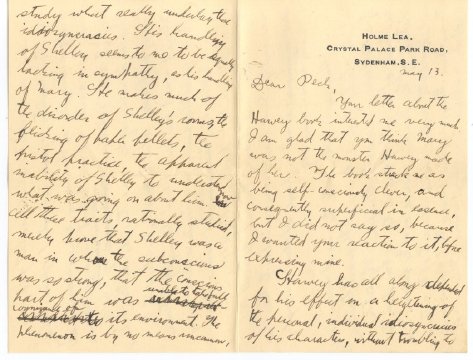 HOLME LEA,
CRYSTAL PALACE PARK ROAD,
SYDENHAM, S.E.
May 13.
Dear Peck,
Your letter about the
Harvey book interested me very much.
I am glad that you think Mary
was not the monster Harvey made
of her. The book struck me as
being self-consciously clever, and
consequently superficial in essence,
but I did not say so, because
I wanted your reaction to it, before
expressing mine.
Harvey has all along depended
for his effect on a heightening of
the personal, individual idiosyncrasies
of his character, without troubling to
study what really underlay these
idiosyncrasies. His handling
of Shelley seems to me to be equally
lacking in sympathy, as his handling
of Mary. He makes much of
the disorder of Shelley's rooms, the
flicking of paper pellets, the
pistol practice, the apparent
inability of Shelley to understand
what was going on about him. Now
all these traits, rationally studied,
merely prove that Shelley was a
man in whom the subconscious
was so strong, that the conscious
part of him was unable to take full
command of
its environment. The
phenomenon is by no means uncommon,